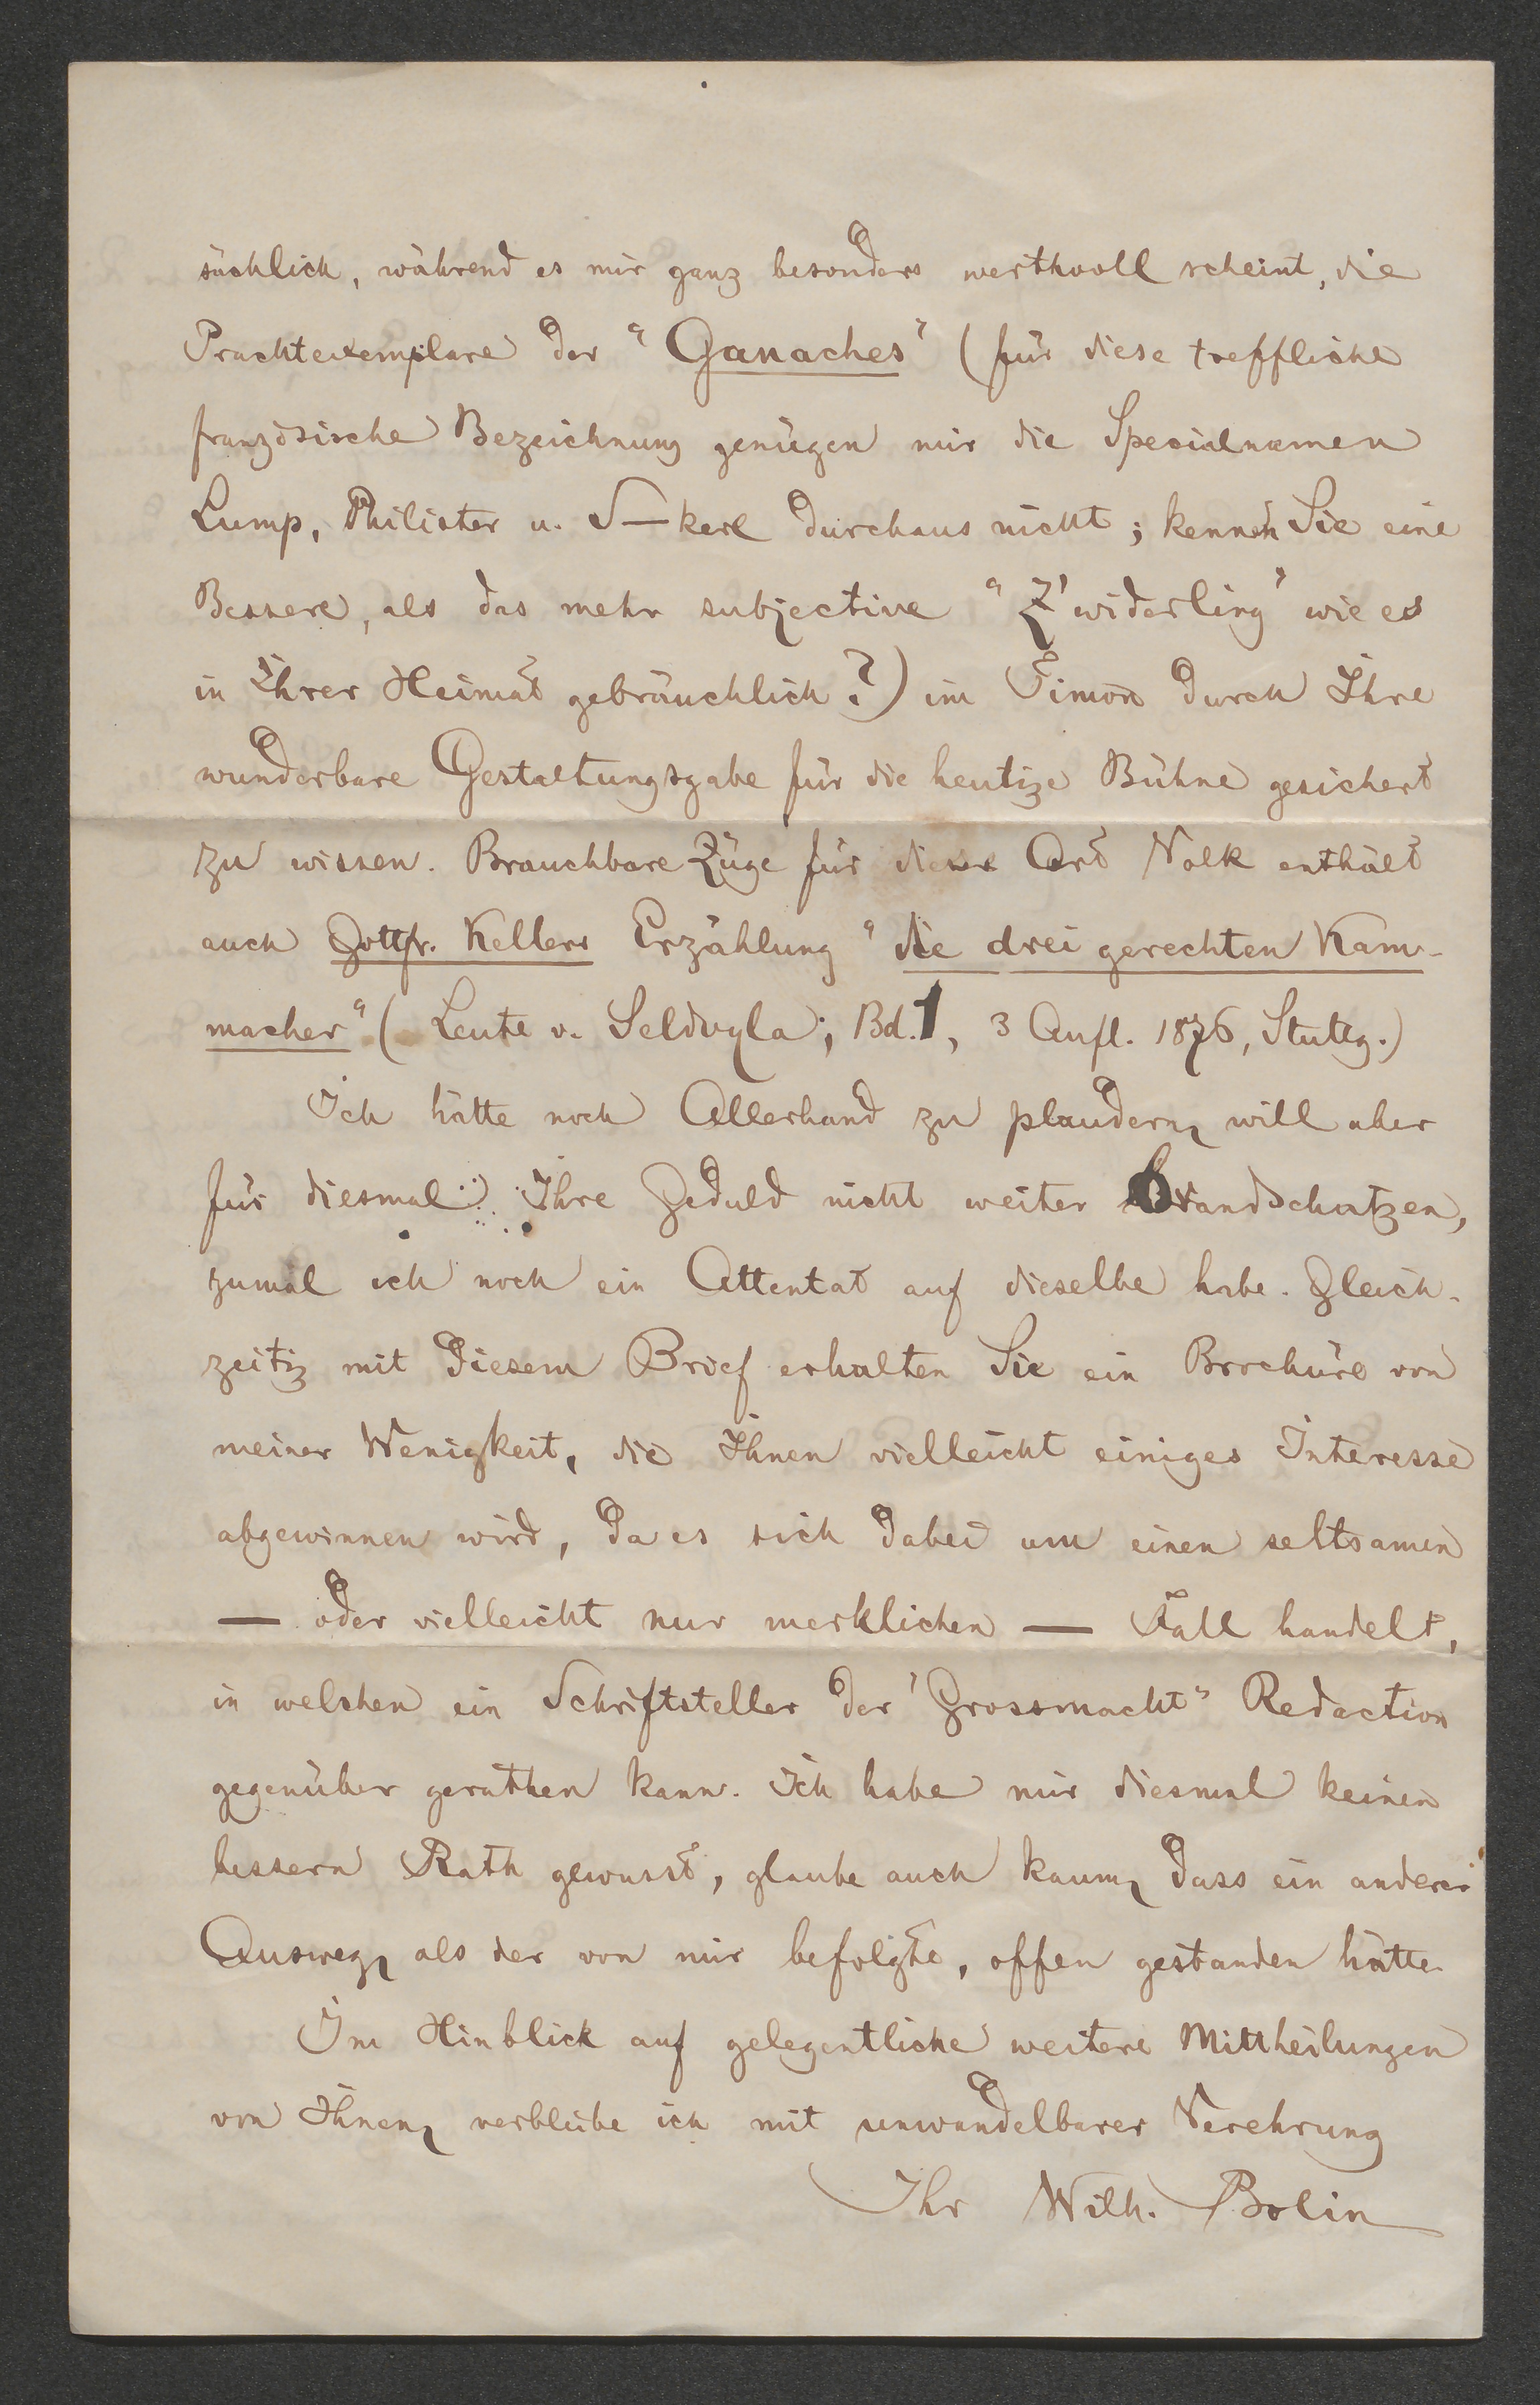 sächlich, während es mir ganz besonders werthvoll scheint, die
Prachtexemplare der "Ganaches" (für diese treffliche
französische Bezeichnung genügen mir die Specialnamen
Lump, Philister u. S—kerl durchaus nicht; kennen Sie eine
Bessere, als das mehr subjective "Z'widerling" wie es
in Ihrer Heimat gebräuchlich?) im Timon durch Ihre
wunderbare Gestaltungsgabe für die heutige Bühne gesichert
zu wissen. Brauchbare Züge für diese Art Volk enthält
auch Gottfr. Kellers Erzählung "die drei gerechten Kam-
macher" (Leute v. Seldwyla; Bd. 1, 3 Aufl. 1876, Stuttg.)
Ich hätte noch Allerhand zu plaudern, will aber
für diesmal Ihre Geduld nicht weiter brandschatzen,
zumal ich noch ein Attentat auf dieselbe habe. Gleich-
zeitig mit diesem Brief erhalten Sie ein Brochüre von
meiner Wenigkeit, die Ihnen vielleicht einiges Interesse
abgewinnen wird, da es sich dabei um einen seltsamen
— oder vielleicht nur merklichen — Fall handelt,
in welchen ein Schriftsteller der "Grossmacht" Redaction
gegenüber gerathen kann. Ich habe mir diesmal keinen
bessern Rath gewusst, glaube auch kaum, dass ein anderer
Ausweg, als der von mir befolgte, offen gestanden hätte.
Im Hinblick auf gelegentliche weitere Mittheilungen
von Ihnen, verbleibe ich mit unwandelbarer Verehrung
Ihr Wilh. Bolin